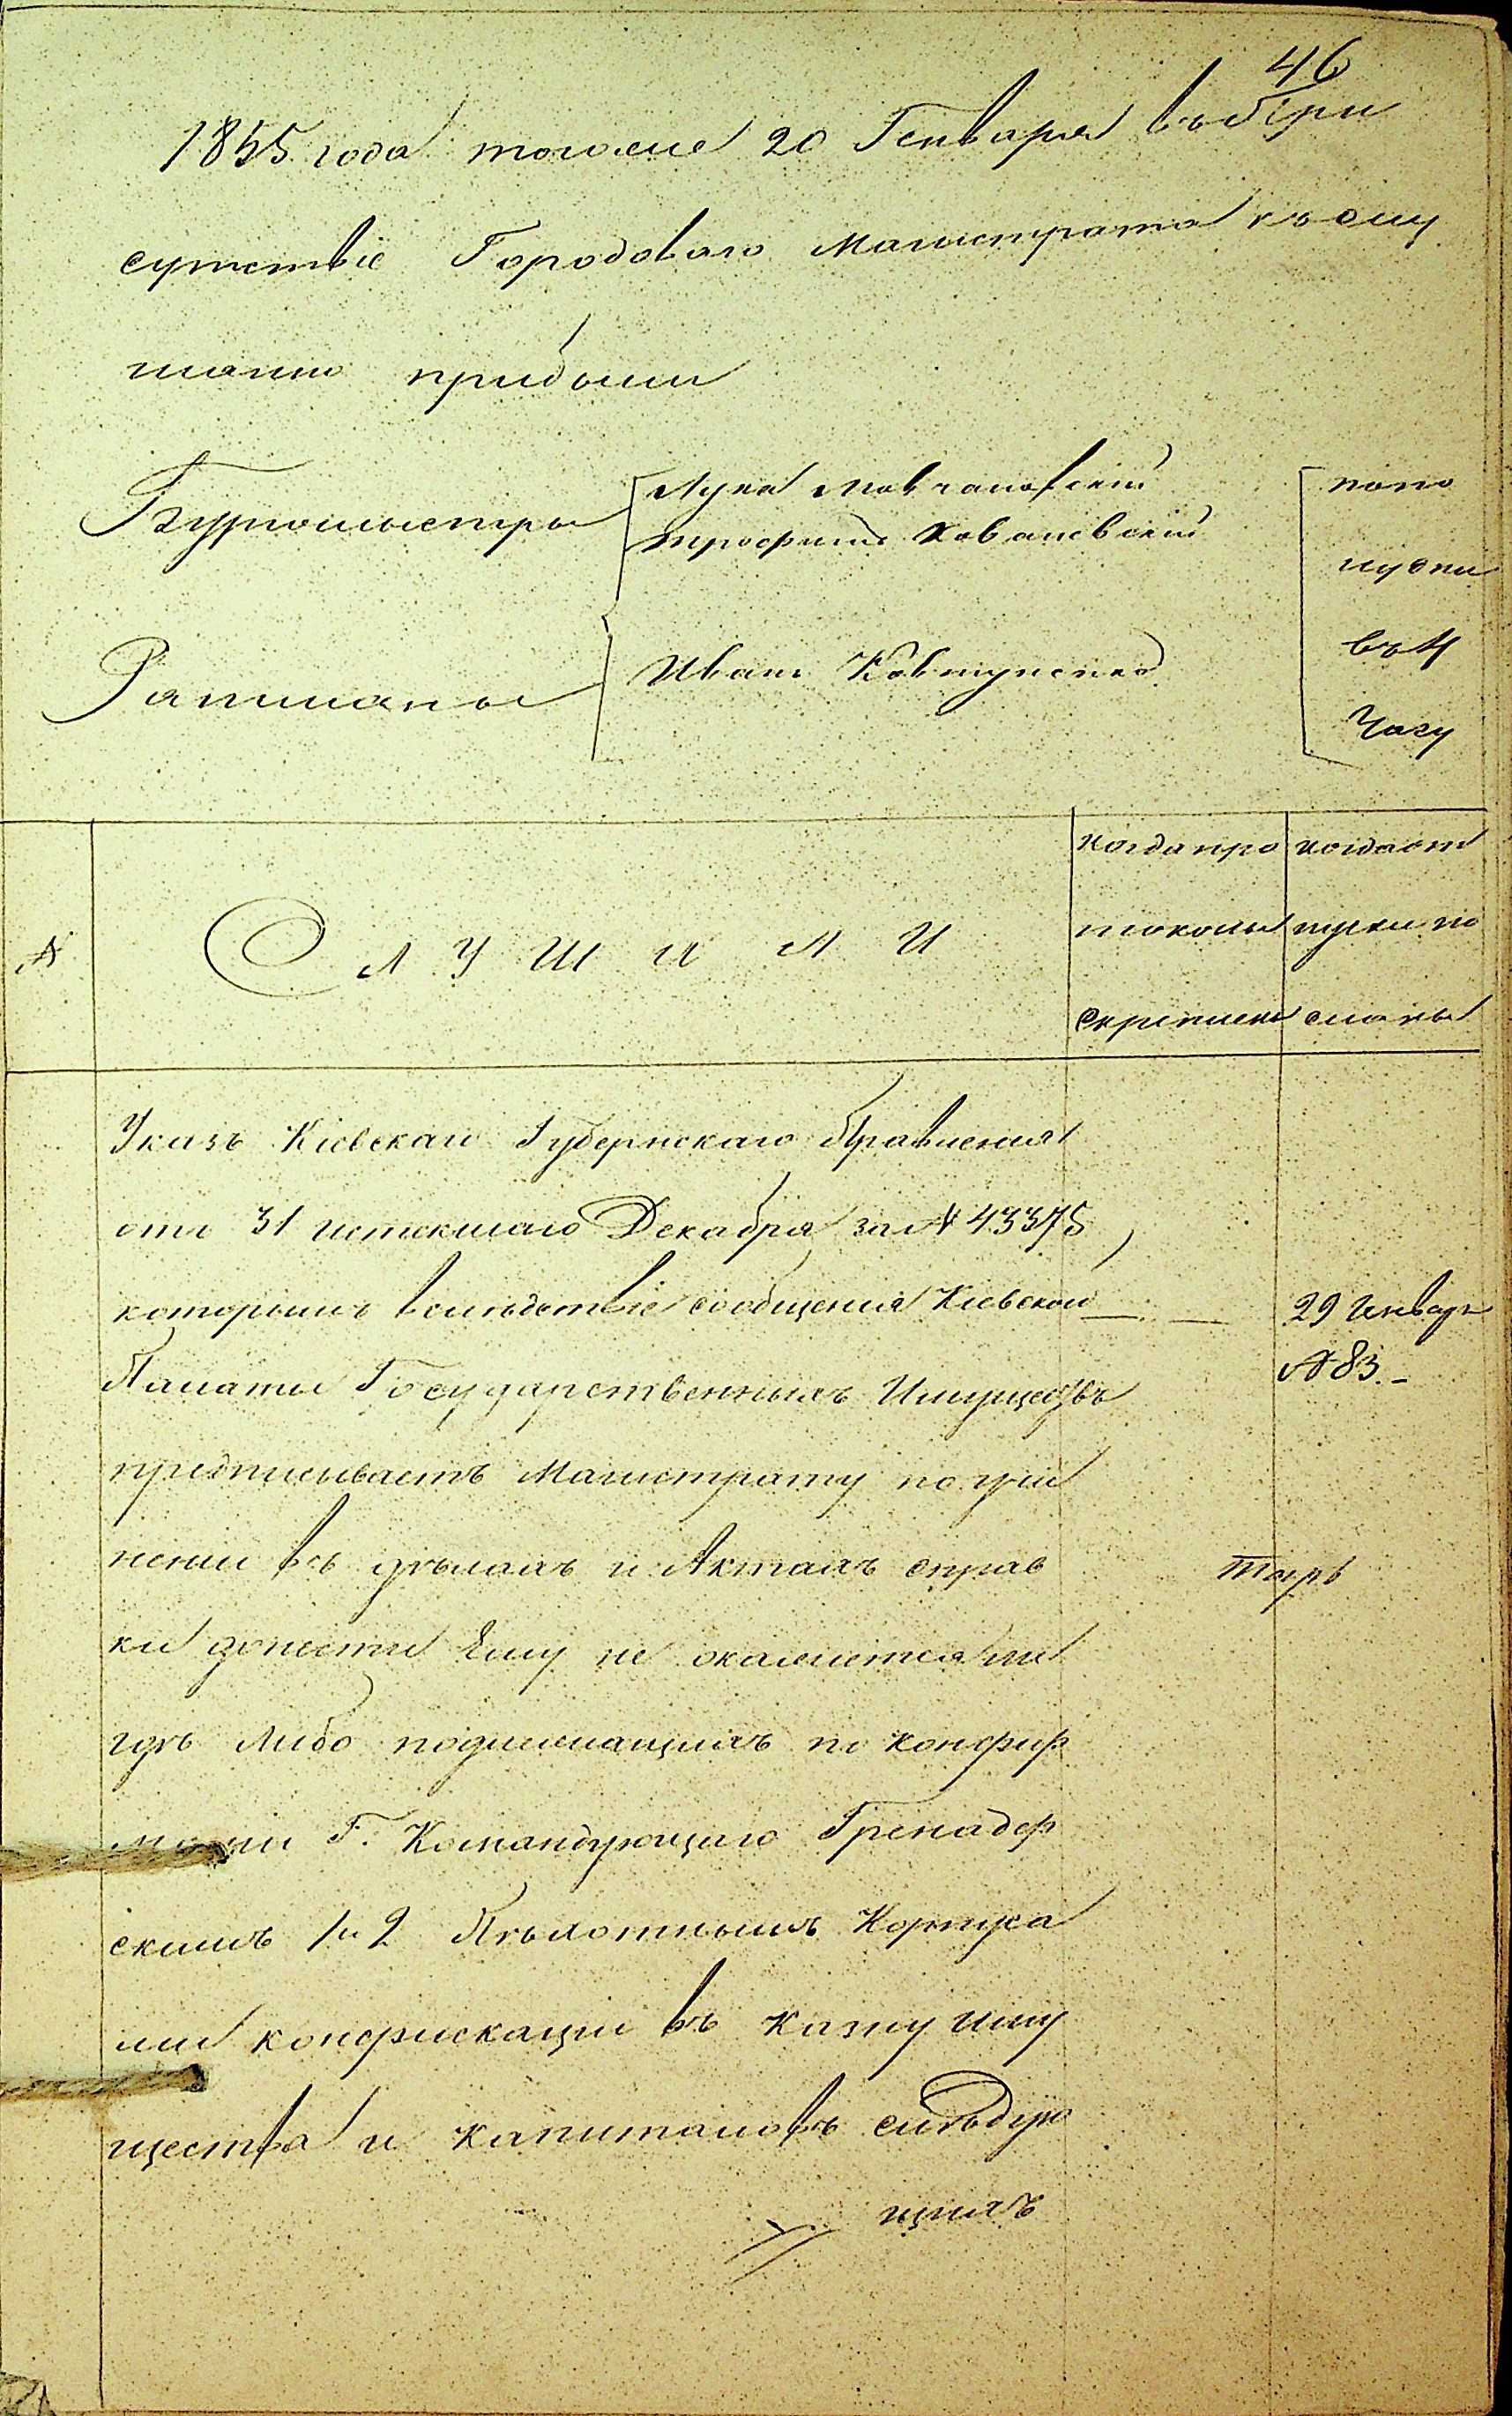 46
1855 года тогоже 20 Генваря въ при
сутствіе Городоваго Магистрата къ слу
шанію прибыли
Бургомистры Лука Мовчановскій
Трофимъ Ковалевскій
Ратманы Иванъ Ковтуненко
попо
лудни
въ 4
Часу
№
СЛУШАЛИ
когда про
токолы
скреплены
когда от
пуски по
сланы
Указъ Кіевскаго Губернскаго Правленія
отъ 31 истекшаго Декабря за № 43375
которымъ вслѣдствіе сообщенія Кіевской
29 Генваря
№ 83.
Палаты Государственныхъ Имуществъ
предписываетъ Магистрату по учи
неніи въ дѣлахъ и Актахъ справ
ки донести Ему не окажется ли
гдѣ либо подлежащихъ по конфир
маціи Г. Командующаго Гренадер
скимъ 1 и 2 Пѣхотнымъ Корпуса
ми конфискаціи въ казну иму
щества и капиталовъ слѣдую
щихъ